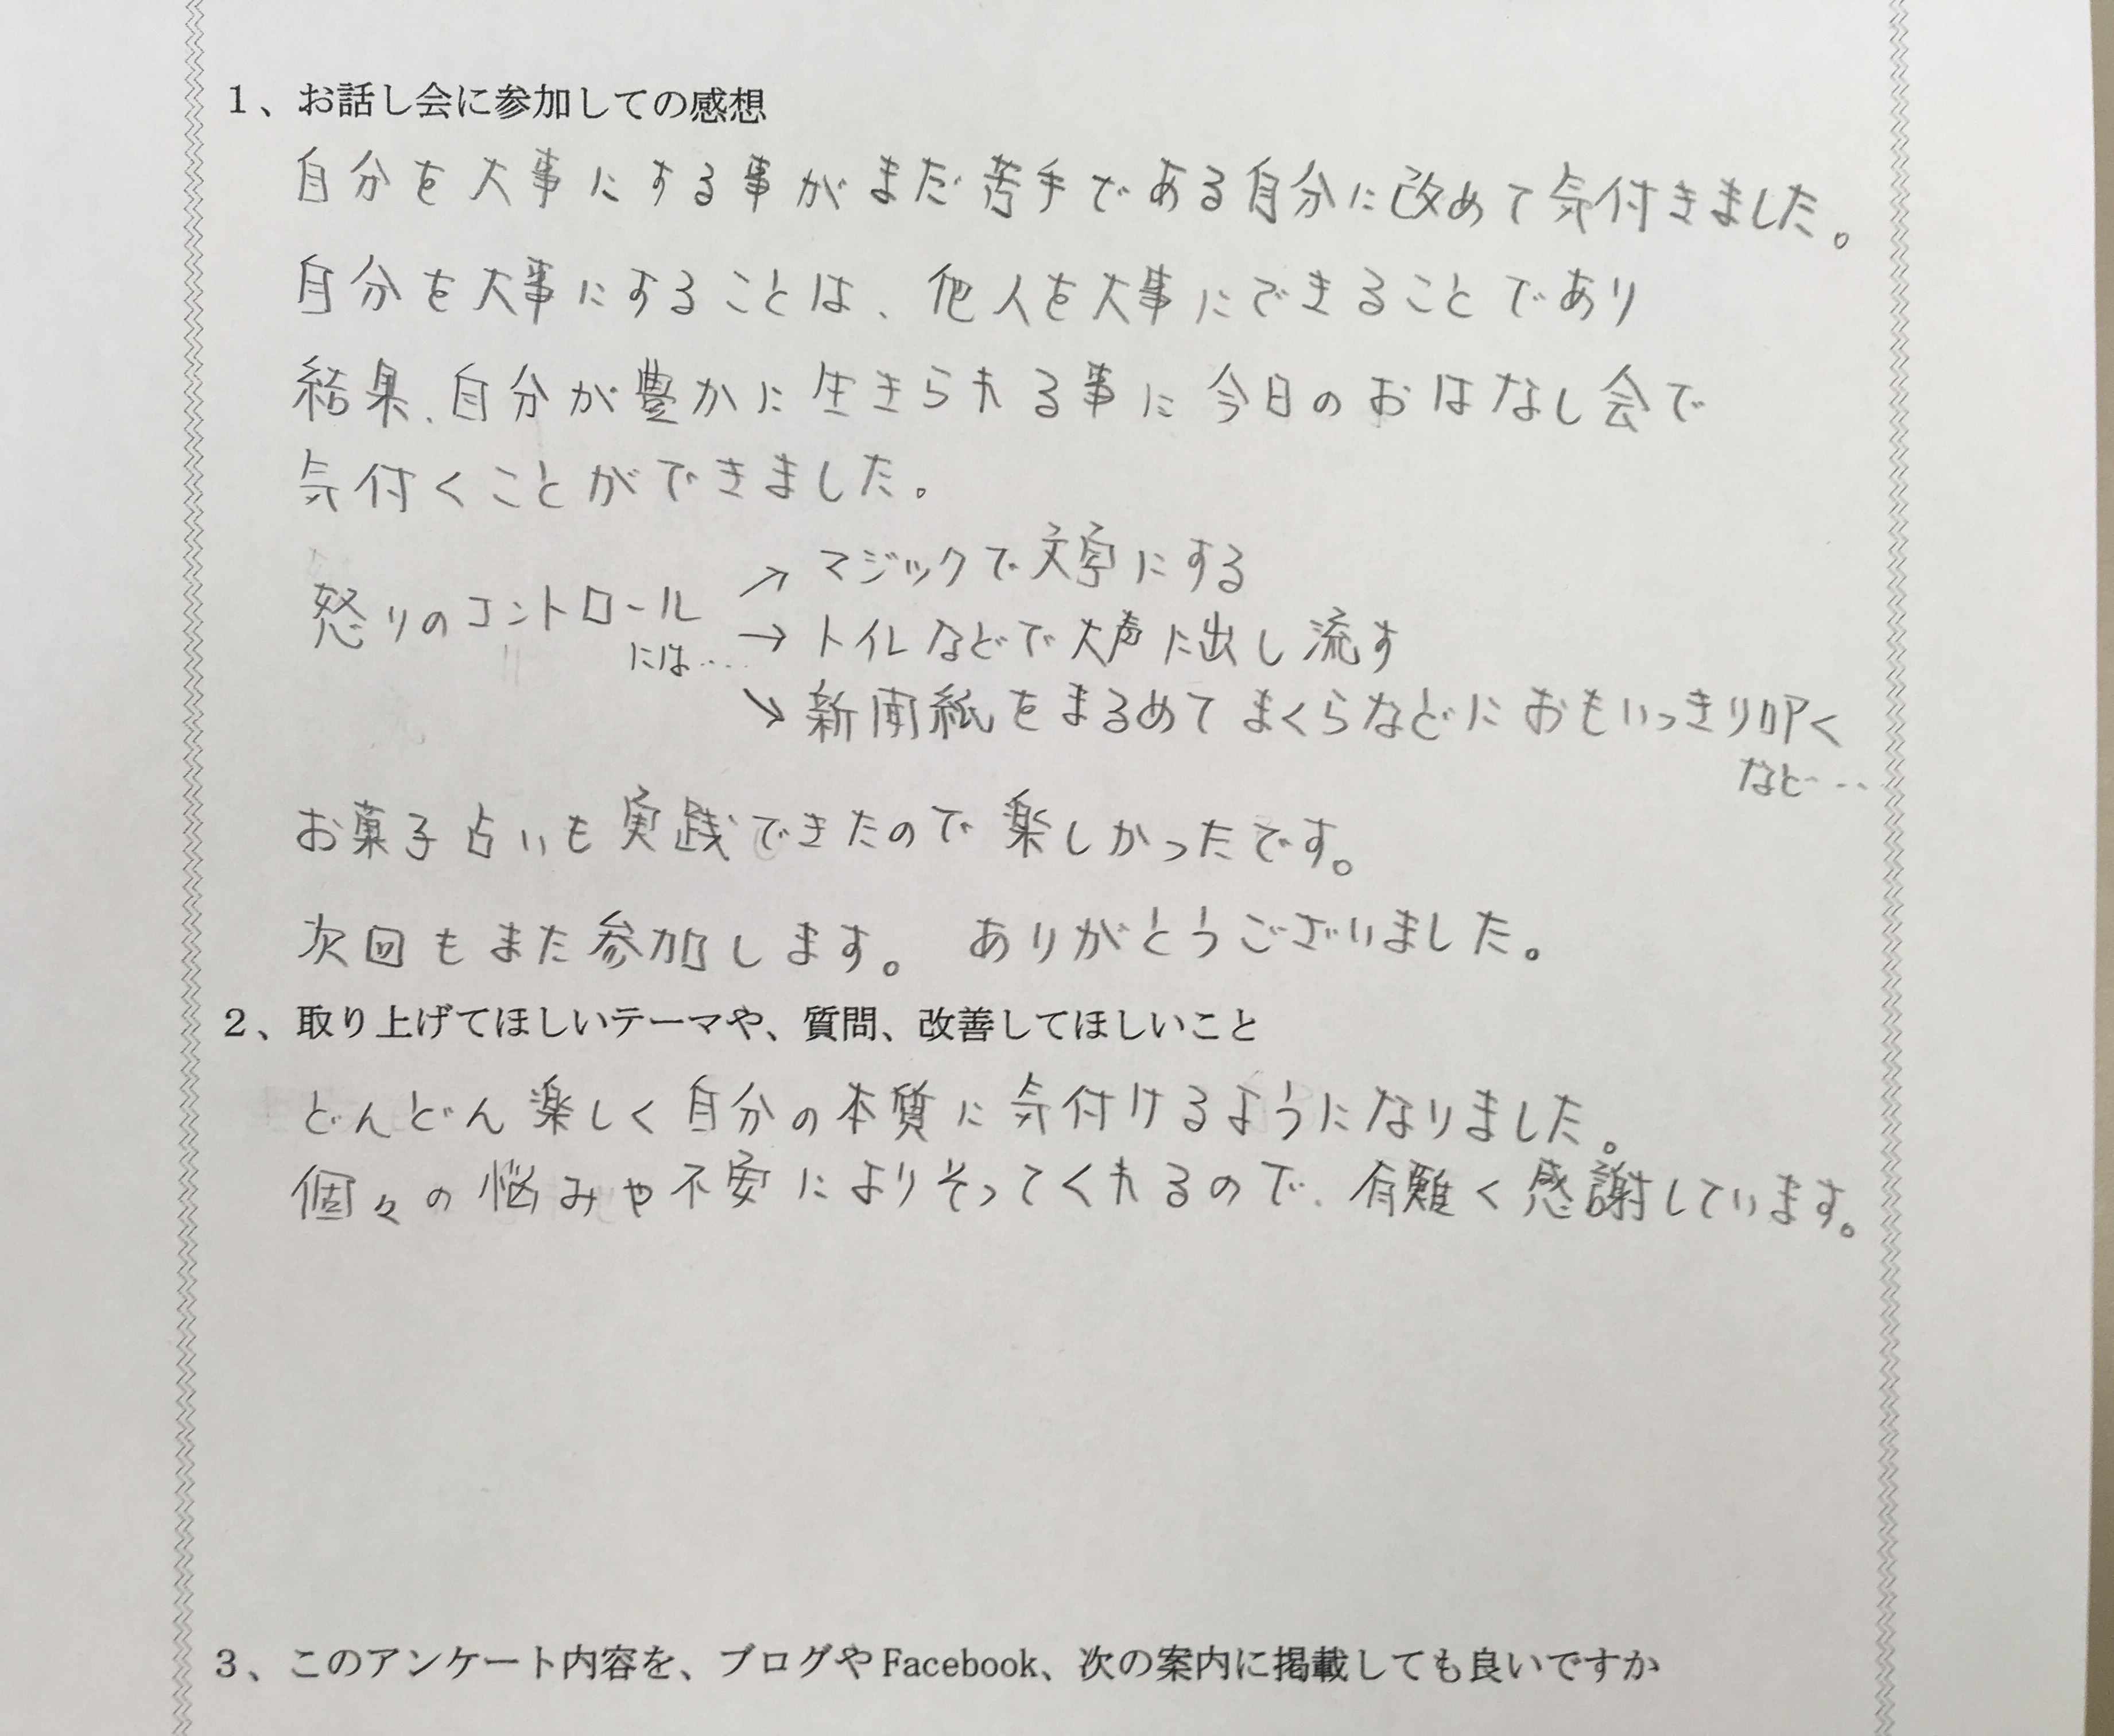 １、お話し会に参加しての感想
自分を大事にする事がまだ苦手である自分に改めて気付きました。
自分を大事にすることは、他人を大事にできることであり
結果、自分が豊かに生きられる事に今日のおはなし会で
気付くことができました。
怒りのコントロール
には…
↗ マジックで文字にする
→ トイレなどで大声に出し流す
↘ 新聞紙をまるめてまくらなどにおもいっきり叩く
など…
お菓子占いも実践できたので楽しかったです。
次回もまた参加します。 ありがとうございました。
２、取り上げてほしいテーマや、質問、改善してほしいこと
どんどん楽しく自分の本質に気付けるようになりました。
個々の悩みや不安によりそってくれるので、有難く感謝しています。
３、このアンケート内容を、ブログや Facebook、次の案内に掲載しても良いですか